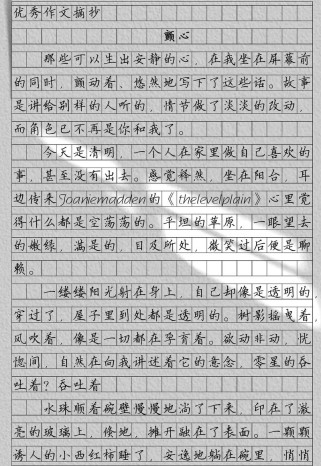 优秀作文摘抄
颤心
那些可以生出安静的心，在我坐在屏幕前
的同时，颤动着、悠然地写下了这些话。故事
是讲给别样的人听的，情节做了淡淡的改动，
而角色已不再是你和我了。
今天是清明，一个人在家里做自己喜欢的
事，甚至没有出去。感觉释然，坐在阳台，耳
边传来Joaniemadden的《thelevelplain》心里觉
得什么都是空荡荡的。平坦的草原，一眼望去
的嫩绿，满是的，目及所处，微笑过后便是聊
赖。
一缕缕阳光射在身上，自己却像是透明的，
穿过了，屋子里到处都是透明的。树影摇曳着，
风吹着，像是一切都在孕育着。欲动非动，恍
惚间，自然在向我讲述着它的意念，零星的吞
吐着？吞吐着
水珠顺着碗壁慢慢地淌了下来，印在了漱
亮的玻璃上，倏地，摊开融在了表面。一颗颗
诱人的小西红柿睡了，安逸地躺在碗里，悄悄